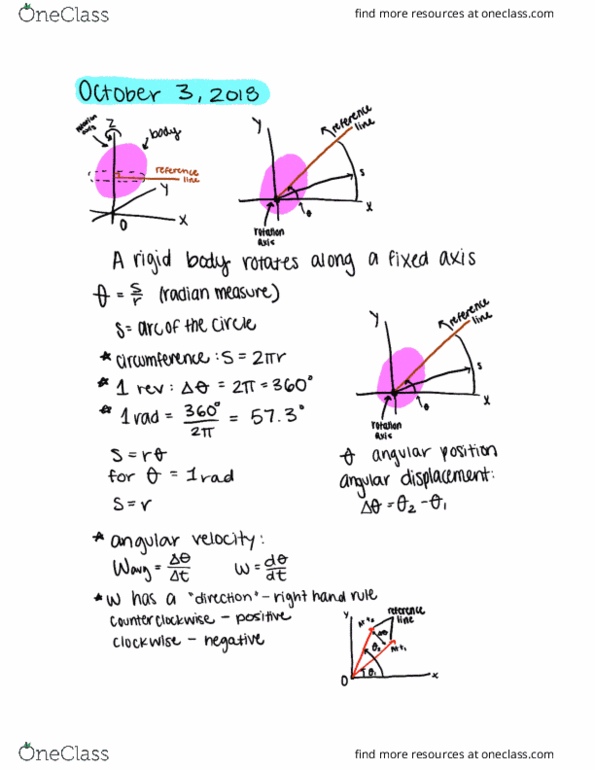 OneClass
find more resources at oneclass.com
October 3, 2018
rotation axis
Z
body
reference line
Y
X
O
Y
reference line
s
θ
X
rotation axis
A rigid body rotates along a fixed axis
θ = s/r (radian measure)
s = arc of the circle
* circumference : S = 2πr
* 1 rev : Δθ = 2π = 360°
* 1 rad = 360°/2π = 57.3°
S = rθ
for θ = 1 rad
S = r
Y
reference line
s
θ
X
rotation axis
θ angular position
angular displacement:
Δθ = θ₂ - θ₁
* angular velocity:
Wavg = Δθ/Δt  W = dθ/dt
* W has a "direction" - right hand rule
counter clockwise - positive
clockwise - negative
Y
reference line
At t₂
Δθ
At t₁
θ₂
θ₁
O
X
OneClass
find more resources at oneclass.com